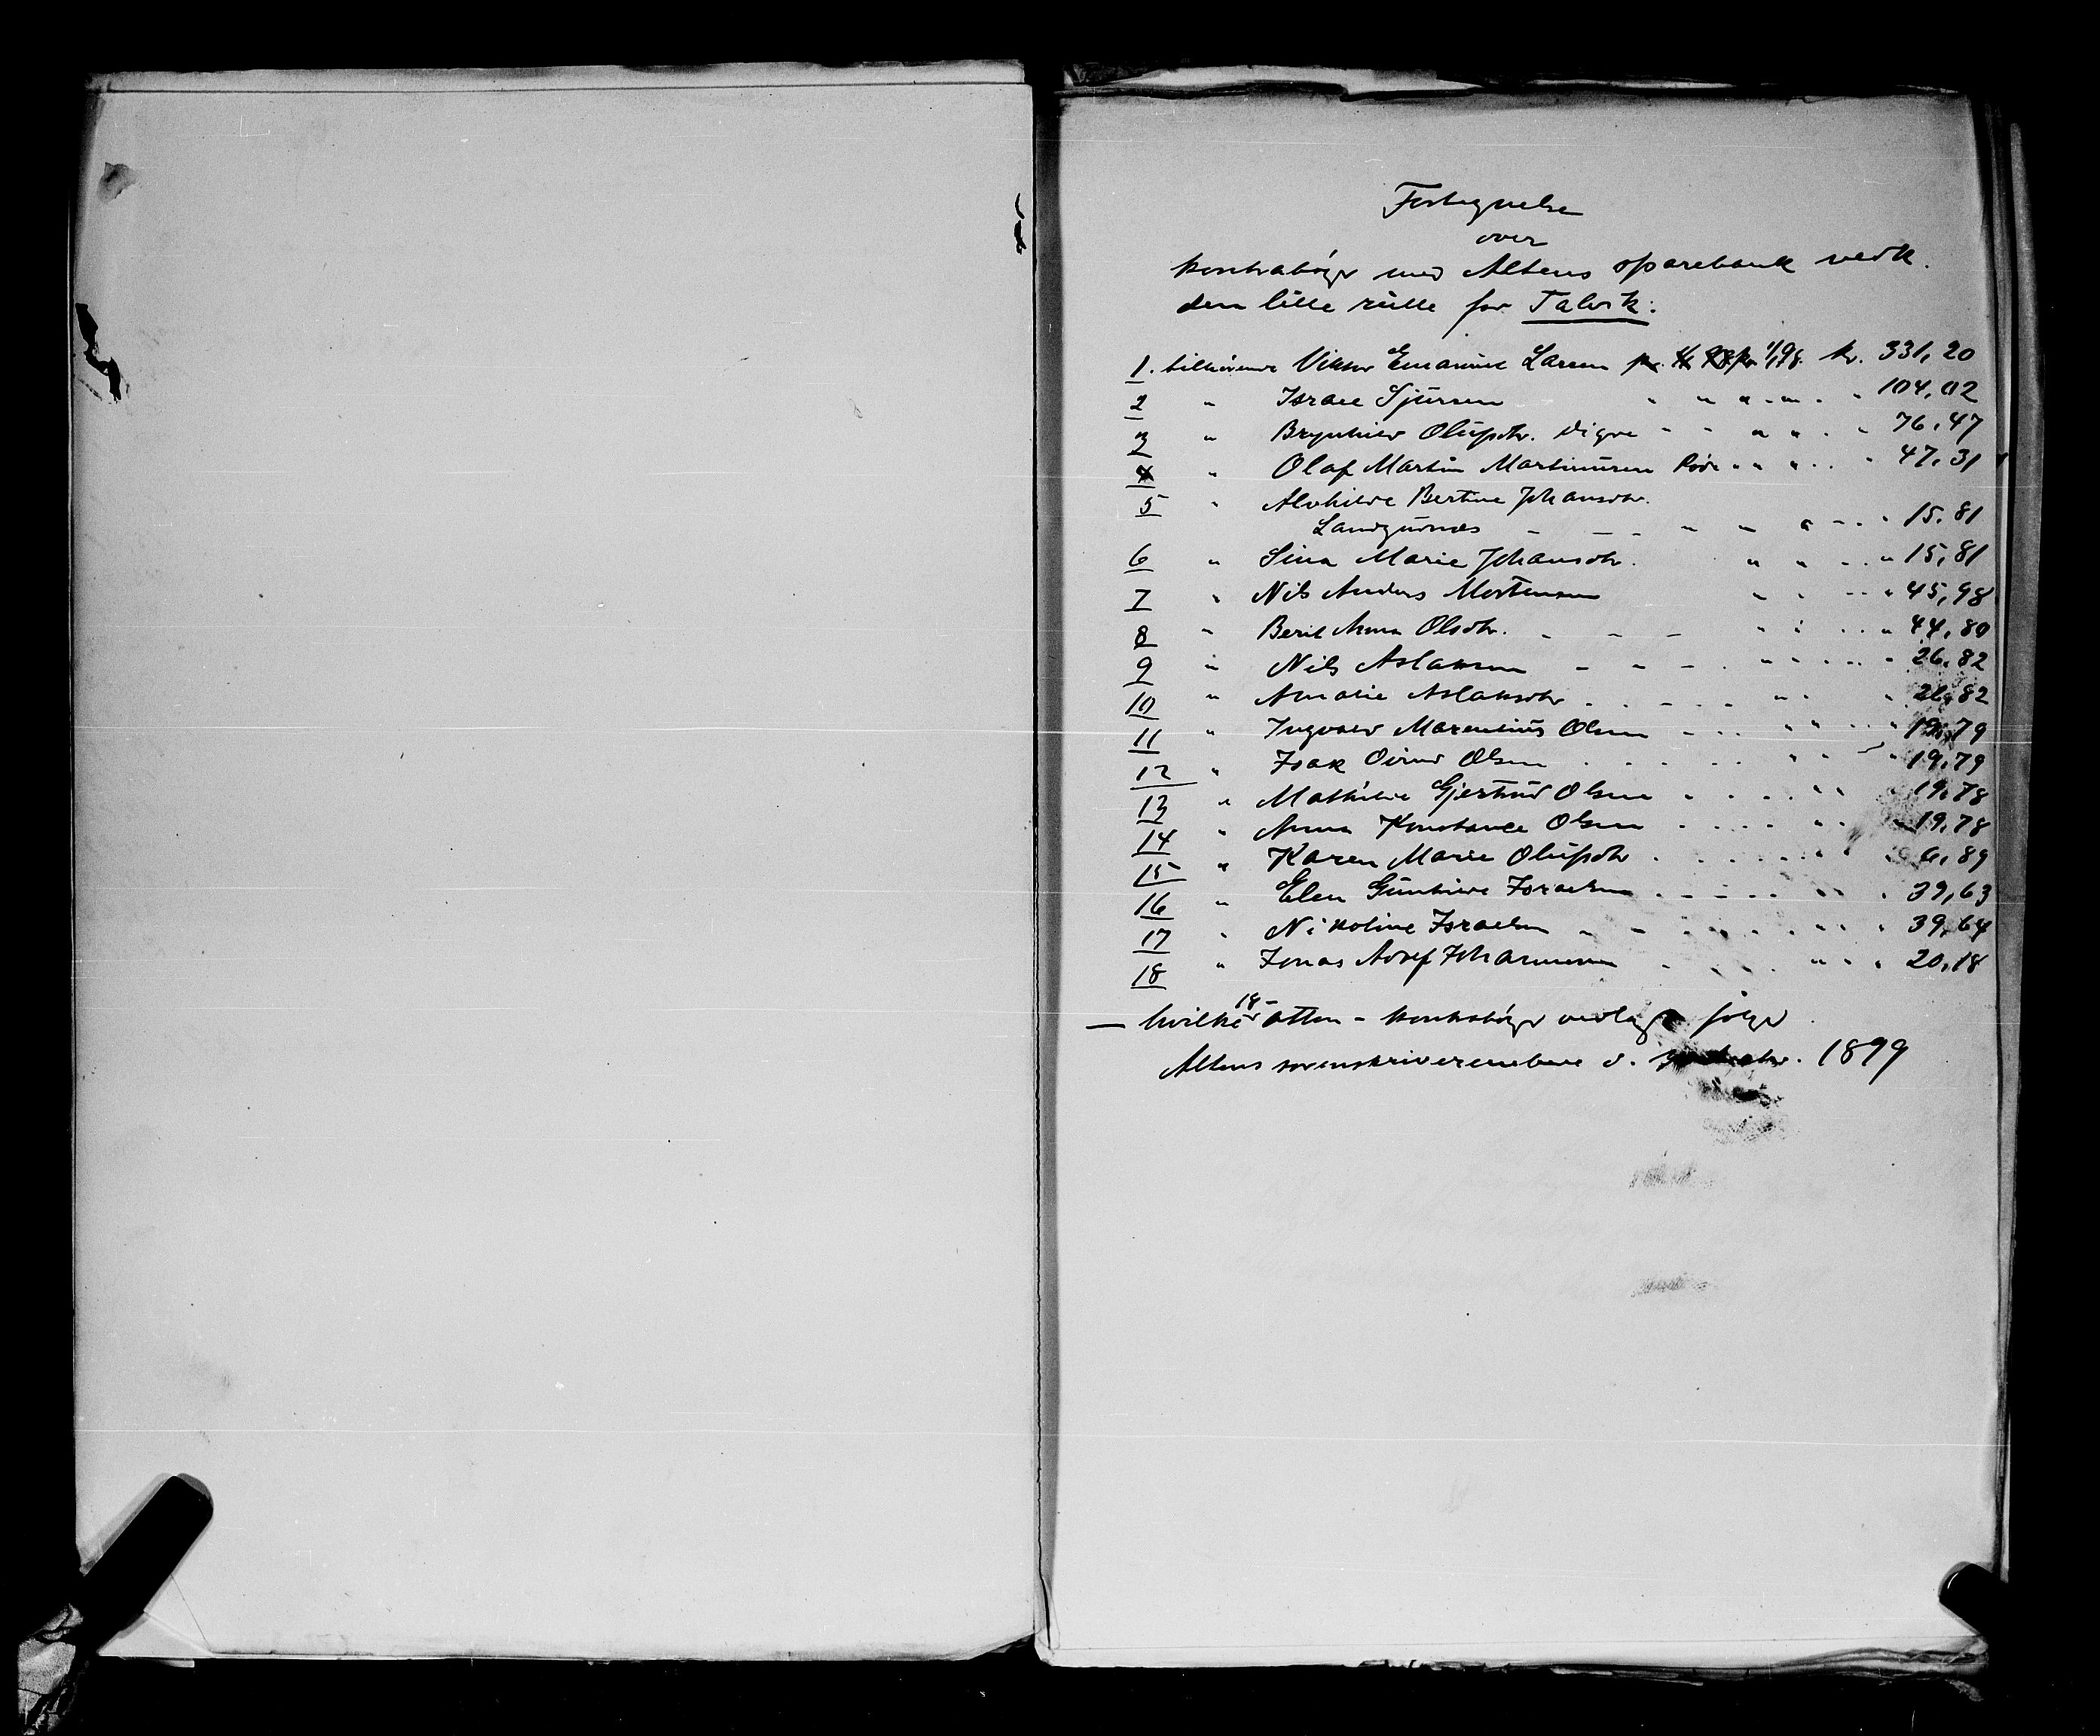 Fortegnelse
over
kontrabøger med Altens sparebank vedk.
den lille rulle for Talvik.
1. tilhørende Viktor Emanuel Larsen pr. 1/1 98. kr. 331,20
2 " Israel Sjursen " " " " 104,02
3 " Brynhild Olufsdtr. Digre " " " " 76,47
4 " Olaf Martin Martinusen " " " 47,31
5 " Alvhilde Bertine Johansdtr.
Landgudnæs " " " 15,81
6 " Sina Marie Johansdtr. " " " 15,81
7 " Nils Anders Mortensen " " " 45,98
8 " Berit Anna Olsdtr. " " " 44,80
9 " Nils Aslaksen " " " 26,82
10 " Amalie Aslaksdtr " " " 26,82
11 " Ingvald Marenius Olsen " " " 19,79
12 " Isak Oivind Olsen " " " 19,79
13 " Mathilde Gjertrud Olsen " " " 19,78
14 " Anna Konstance Olsen " " " 19,78
15 " Karen Marie Olufsdtr " " 6,89
16 " Elen Gunhilde Israelsen " " " 39,63
17 " Nikoline Israelsen " " " 39,64
18 " Jonas Adolf Johannesen " " " 20,18
— hvilke 18 - atten - kontrabøger vedlagt følger
Altens sorenskriverembede d. 1899